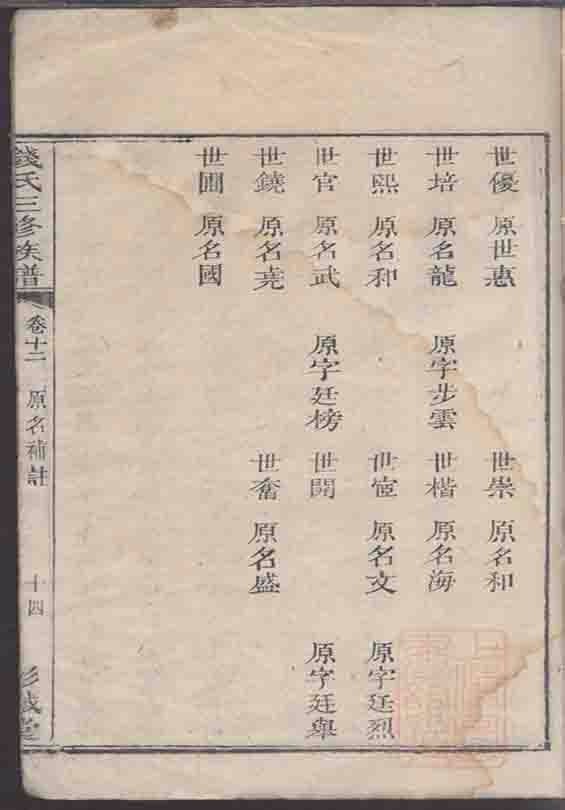 世優 原世惠 世崇 原名和
世培 原名龍 原字步雲 世楷 原名海
世熙 原名和 世宦 原名文 原字廷烈
世官 原名武 原字廷榜 世開 原字廷舉
世鐃 原名堯 世奮 原名盛
世圃 原名國
錢氏三修族譜 卷十二 原名補註 十四 彭城堂